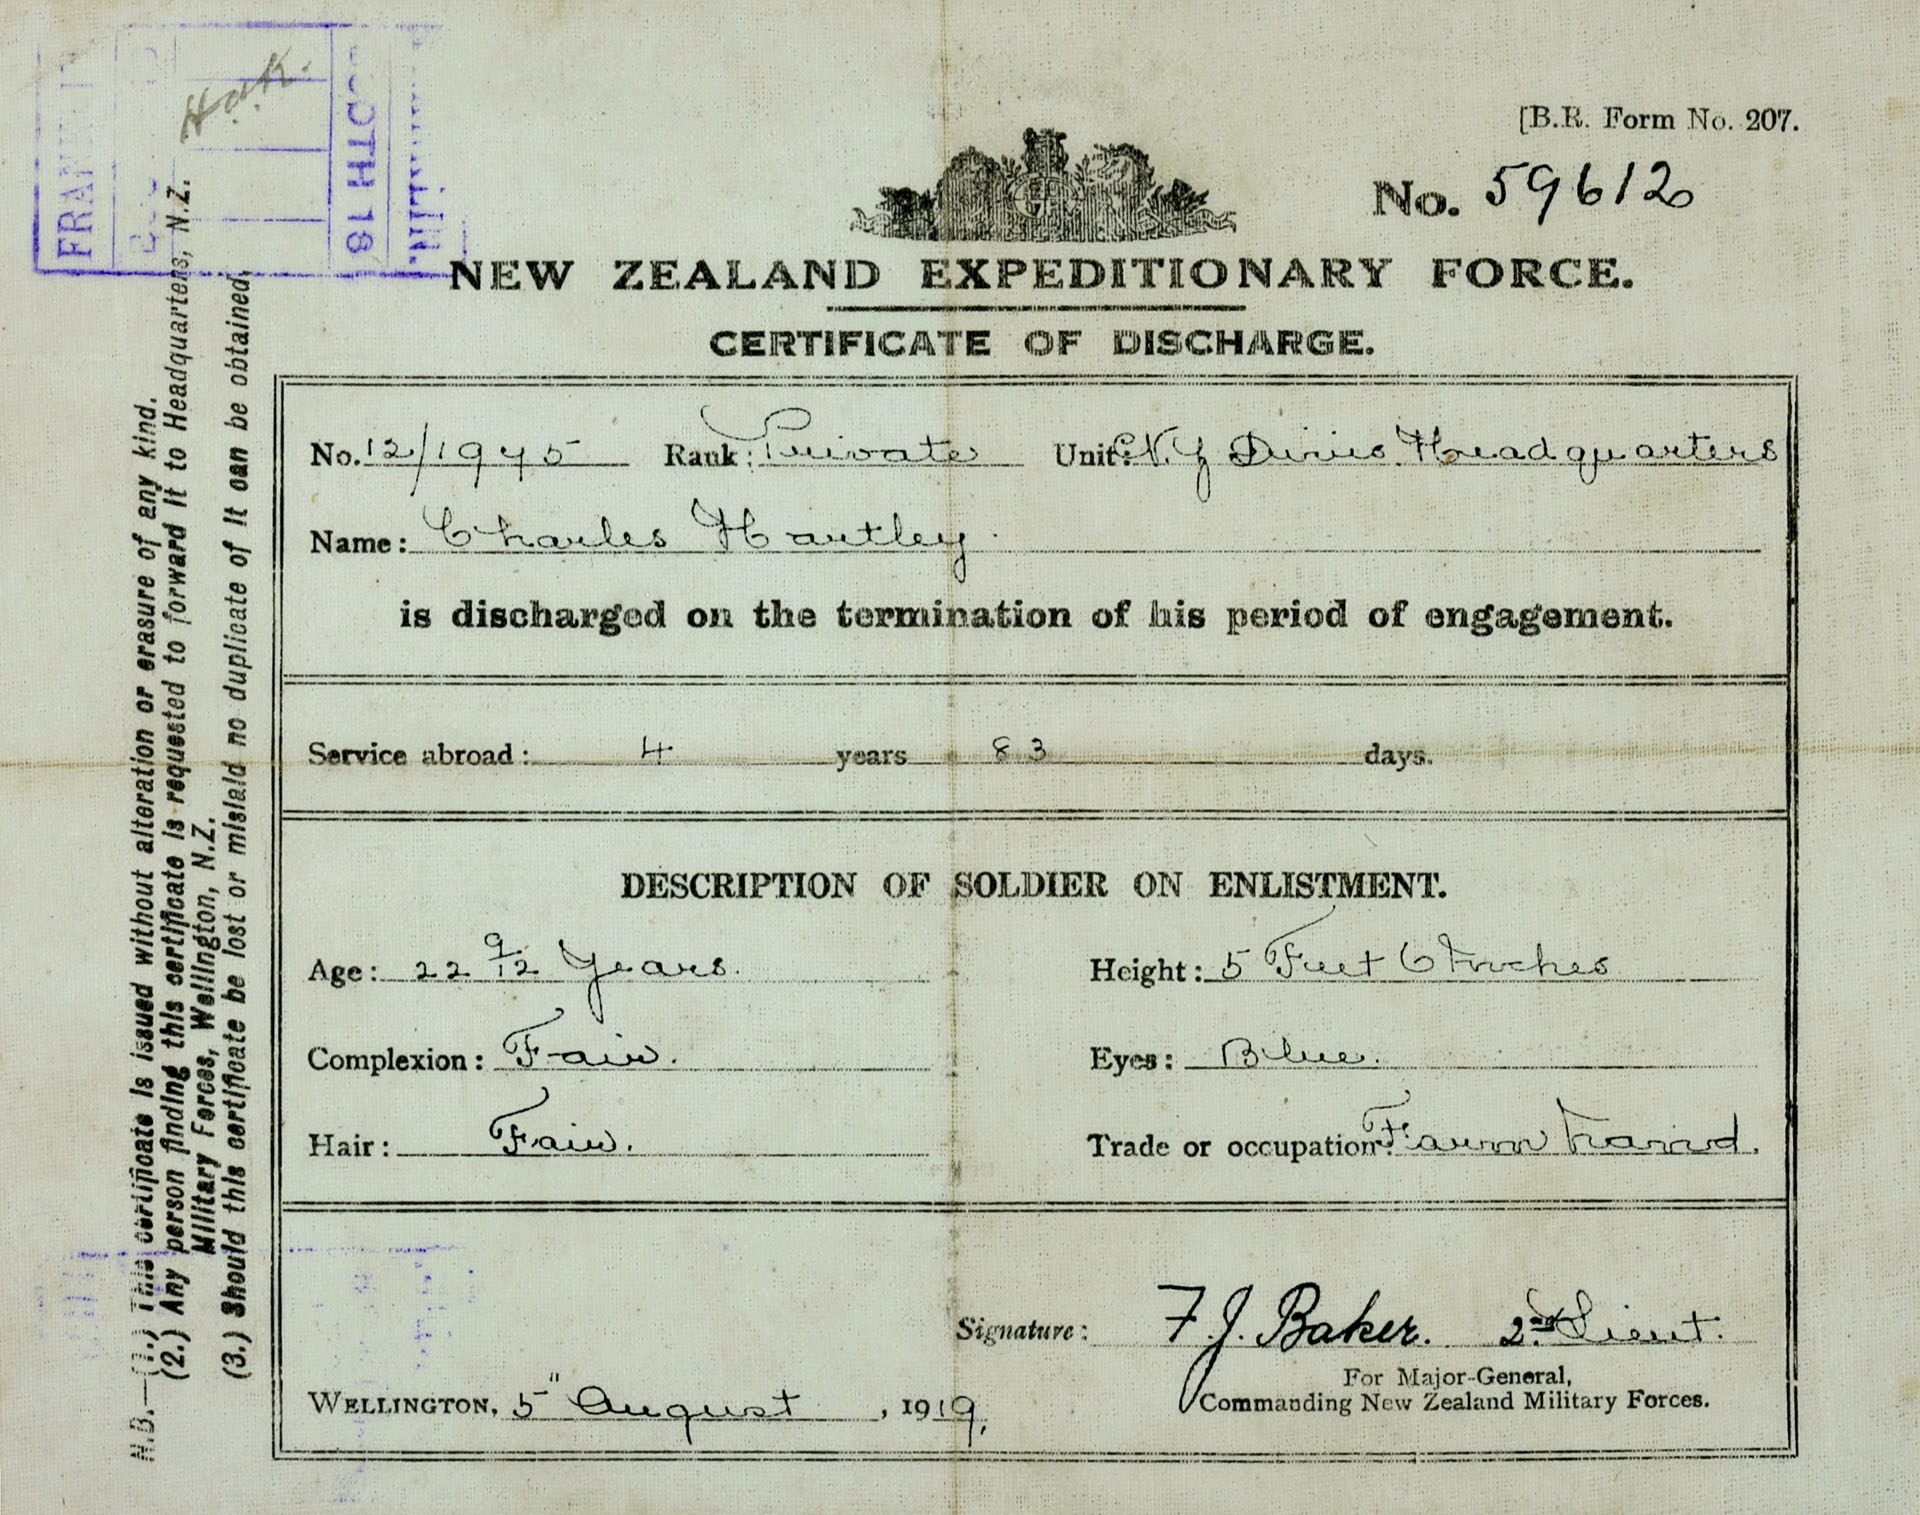 [B.R. Form No. 207.
No. 59612
NEW ZEALAND EXPEDITIONARY FORCE.
CERTIFICATE OF DISCHARGE.
No. 12/1945 Rank: Private Unit: N.Z. Headquarters
Name: Charles Hartley
is discharged on the termination of his period of engagement.
Service abroad: 4 years 83 days.
DESCRIPTION OF SOLDIER ON ENLISTMENT.
Age: 22 9/12 Years. Height: 5 Feet 6 Inches
Complexion: Fair. Eyes: Blue.
Hair: Fair. Trade or occupation: Farm hand.
Signature: F. J. Baker. 2nd Lieut.
For Major-General,
Commanding New Zealand Military Forces.
WELLINGTON, 5" August, 1919.
N.B.—(1.) This certificate is issued without alteration or erasure of any kind.
(2.) Any person finding this certificate is requested to forward it to Headquarters, N.Z.
Military Forces, Wellington, N.Z.
(3.) Should this certificate be lost or mislaid no duplicate of it can be obtained.